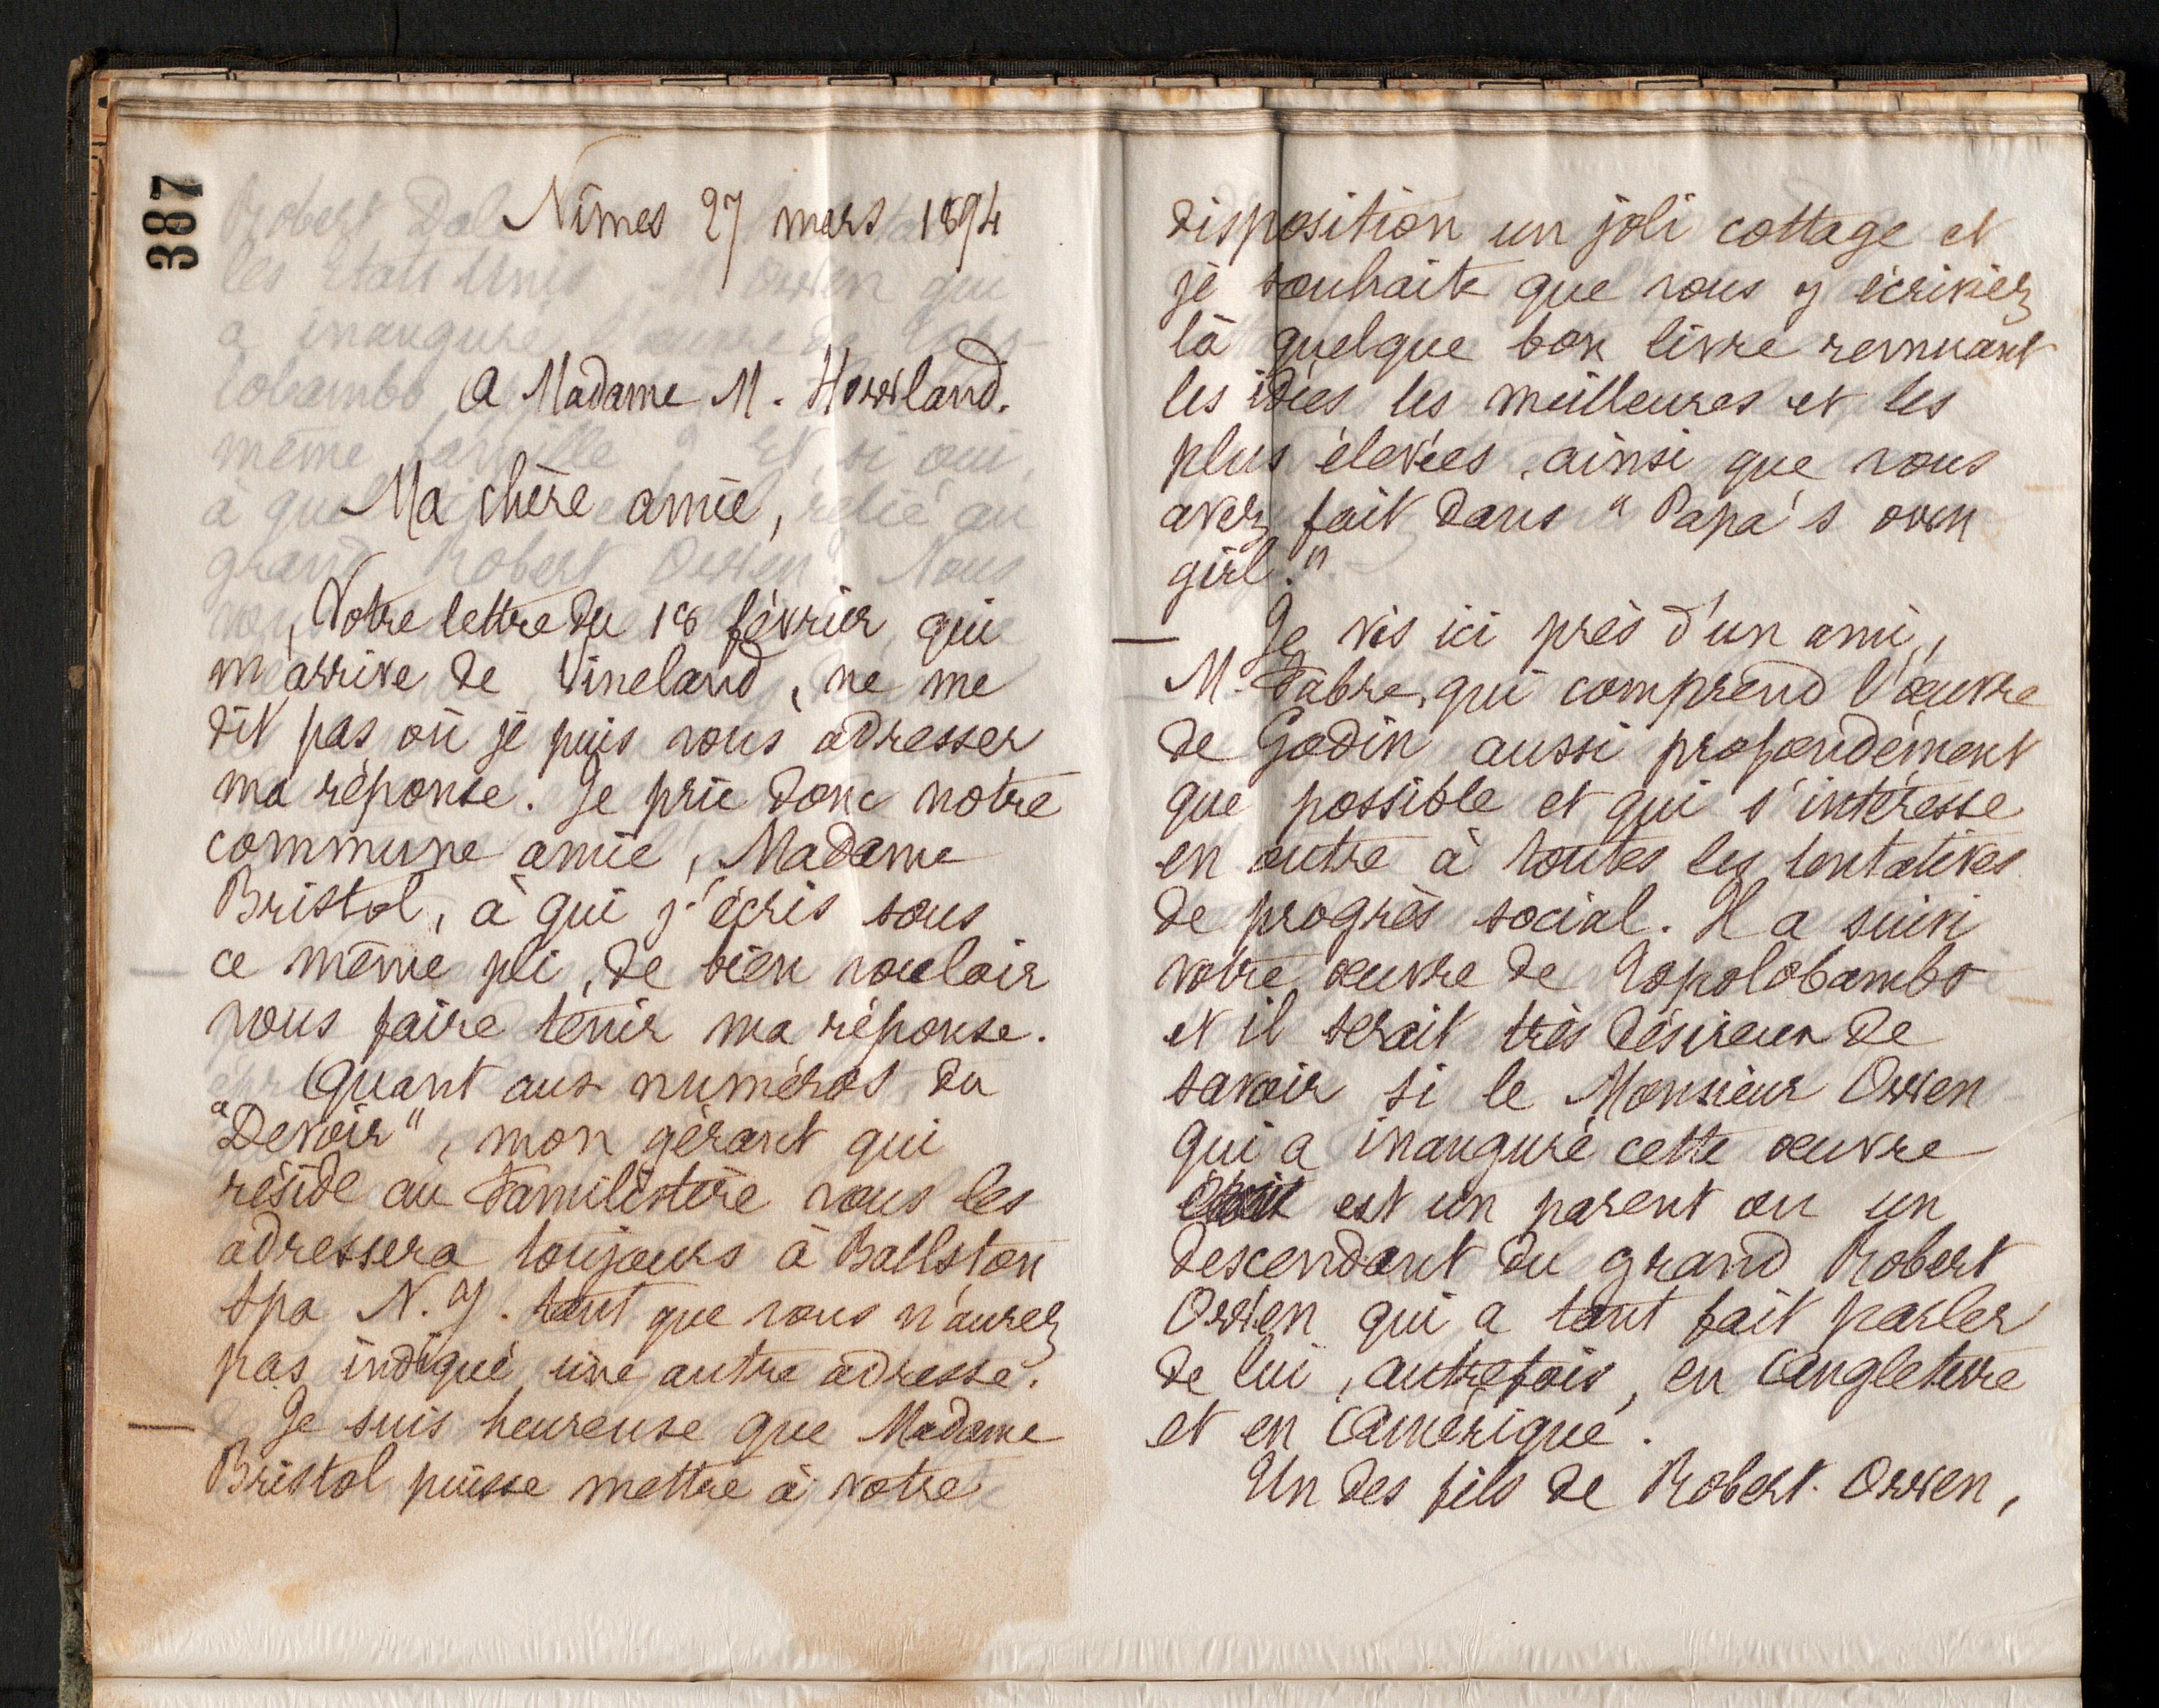 387
Nîmes 27 mars 1894
A Madame M. Howland.
Ma chère amie,
Votre lettre du 1er février, qui
m'arrive de Vineland, ne me
dit pas où je puis vous adresser
ma réponse. Je prie donc notre
commune amie, Madame
Bristol, à qui j'écris sous
ce même pli, de bien vouloir
vous faire tenir ma réponse.
Quant aux numéros du
"Devoir", mon gérant qui
réside au Familistère vous les
adressera toujours à Ballston
Spa N. Y. tant que vous n'aurez
pas indiqué une autre adresse.
Je suis heureuse que Madame
Bristol puisse mettre à votre
disposition un joli cottage et
je souhaite que vous y écriviez
là quelque bon livre remuant
les idées les meilleures et les
plus élevées, ainsi que vous
avez fait dans "Papa's own
girl."
Je vis ici près d'un ami,
M. Fabre, qui comprend l'œuvre
de Godin aussi profondément
que possible et qui s'intéresse
en outre à toutes les tentatives
de progrès social. Il a suivi
votre œuvre de Topolobambo
et il serait très désireux de
savoir si le Monsieur Owen
qui a inauguré cette œuvre
est un parent ou un
descendant du grand Robert
Owen qui a tant fait parler
de lui, autrefois, en Angleterre
et en Amérique.
Un des fils de Robert Owen,